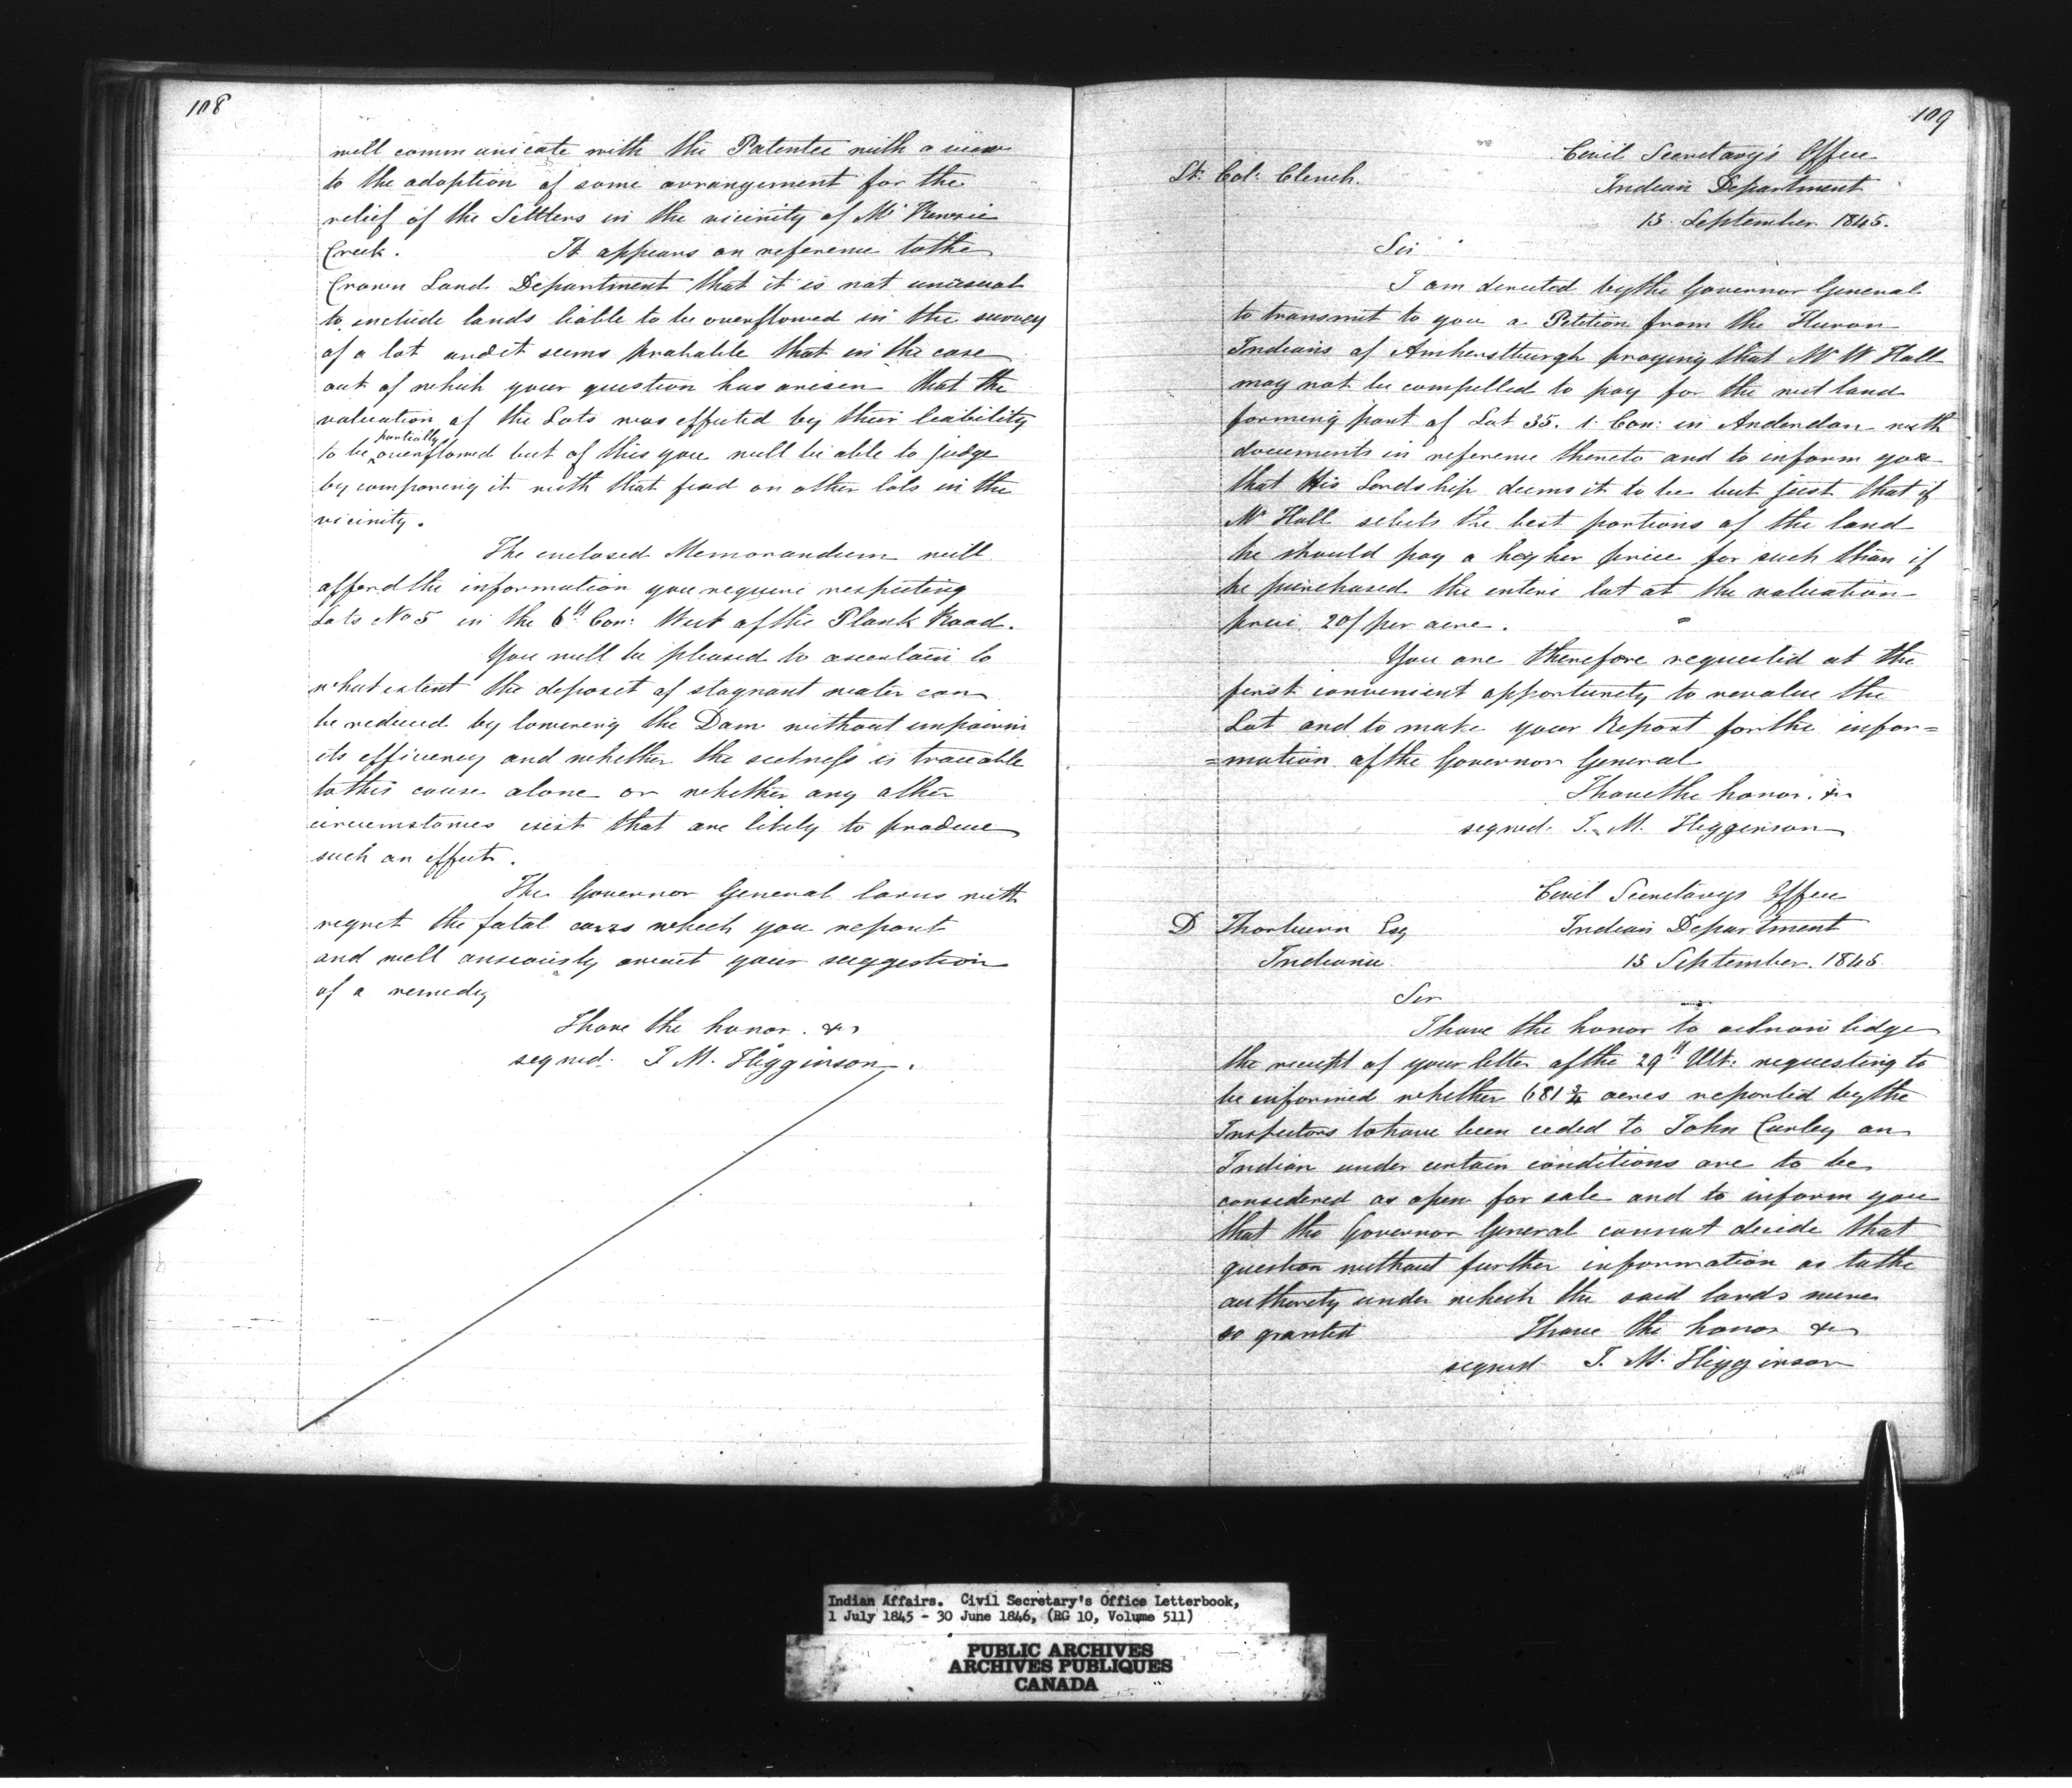 108
will communicate with the Patentee with a view
to the adoption of some arrangement for the
relief of the Settlers in the vicinity of Mc Kenzie
Creek. It appears on reference to the
Crown Land Department that it is not unusual
to include lands liable to be overflowed in the survey
of a lot and it seems probable that in the case
out of which your question has arisen that the
valuation of the Lots was effected by their liability
to be partially overflowed but of this you will be able to judge
by comparing it with that fixed on other lots in the
vicinity.
The enclosed Memorandum will
afford the information you require respecting
Lots No 5 in the 6th Con: West of the Plank Road.
You will be pleased to ascertain to
what extent the deposit of stagnant water can
be reduced by lowering the Dam without impairin
its efficency and whether the sickness is traceable
to this cause alone or whether any other
circumstances exist that are likely to produce
such an effect.
The Governor General learns with
regret the fatal cases which you report
and will anxiously await your suggestion
of a remedy
I have the honor. &c
signed. J M. Higginson.
109
Civil Secretary's Office
Lt. Col: Clench. Indian Department
15 September 1845.
Sir
I am directed by the Governor General
to transmit to you a Petition from the Huron
Indians of Amherstburgh praying that Mr W Hall
may not be compelled to pay for the wet land
forming part of Lot 35. 1. Con: in Anderdon with
documents in reference thereto and to inform you
that His Lordship deems it to be but just that if
Mr Hall selects the best portions of the land
he should pay a higher price for such than if
he purchased the entire lot at the valuation
price 20/ per acre.
You are therefore requested at the
first convenient opportunity to revalue the
Lot and to make your Report for the infor=
=mation of the Governor General
I have the honor. &c
signed. J. M. Higginson
Civil Secretarys Office
D Thorburn Esq Indian Department
Indiana 15 September. 1845
Sir
I have the honor to acknowledge
the receipt of your letter of the 29th Ult: requesting to
be informed whether 681 3/4 acres reported by the
Inspectors to have been ceded to John Curley an
Indian under certain conditions are to be
considered as open for sale and to inform you
that the Governor General cannot decide that
question without further information as to the
authority under which the said lands were
so granted I have the honor &c
signed J. M. Higginson
Indian Affairs. Civil Secretary's Office Letterbook,
1 July 1845 - 30 June 1846, (RG 10, Volume 511)
PUBLIC ARCHIVES
ARCHIVES PUBLIQUES
CANADA